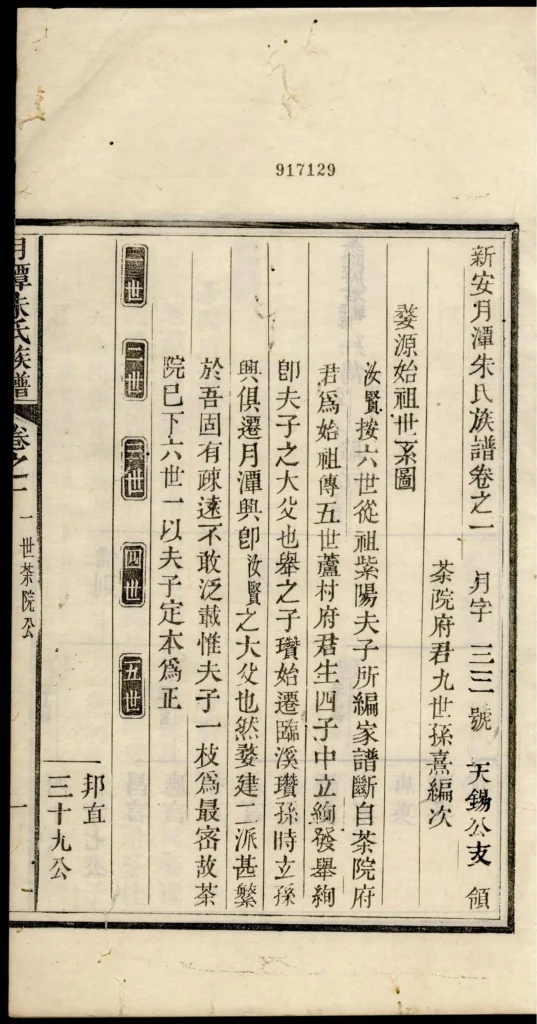 917129
新安月潭朱氏族譜卷之一 月字 三三 號 天錫公支 領
茶院府君九世孫熹編次
婺源始祖世系圖
汝賢按六世從祖紫陽夫子所編家譜斷自茶院府
君爲始祖傳五世蘆村府君生四子中立絢發舉絢
卽夫子之大父也舉之子瓚始遷臨溪瓚孫時立孫
興俱遷月潭興卽汝賢之大父也然婺建二派甚繁
於吾固有疎遠不敢泛載惟夫子一枝爲最密故茶
院已下六世一以夫子定本爲正
一世 二世 三世 四世 五世
邦直
三十九公
月潭朱氏族譜 卷之一 一世茶院公 一